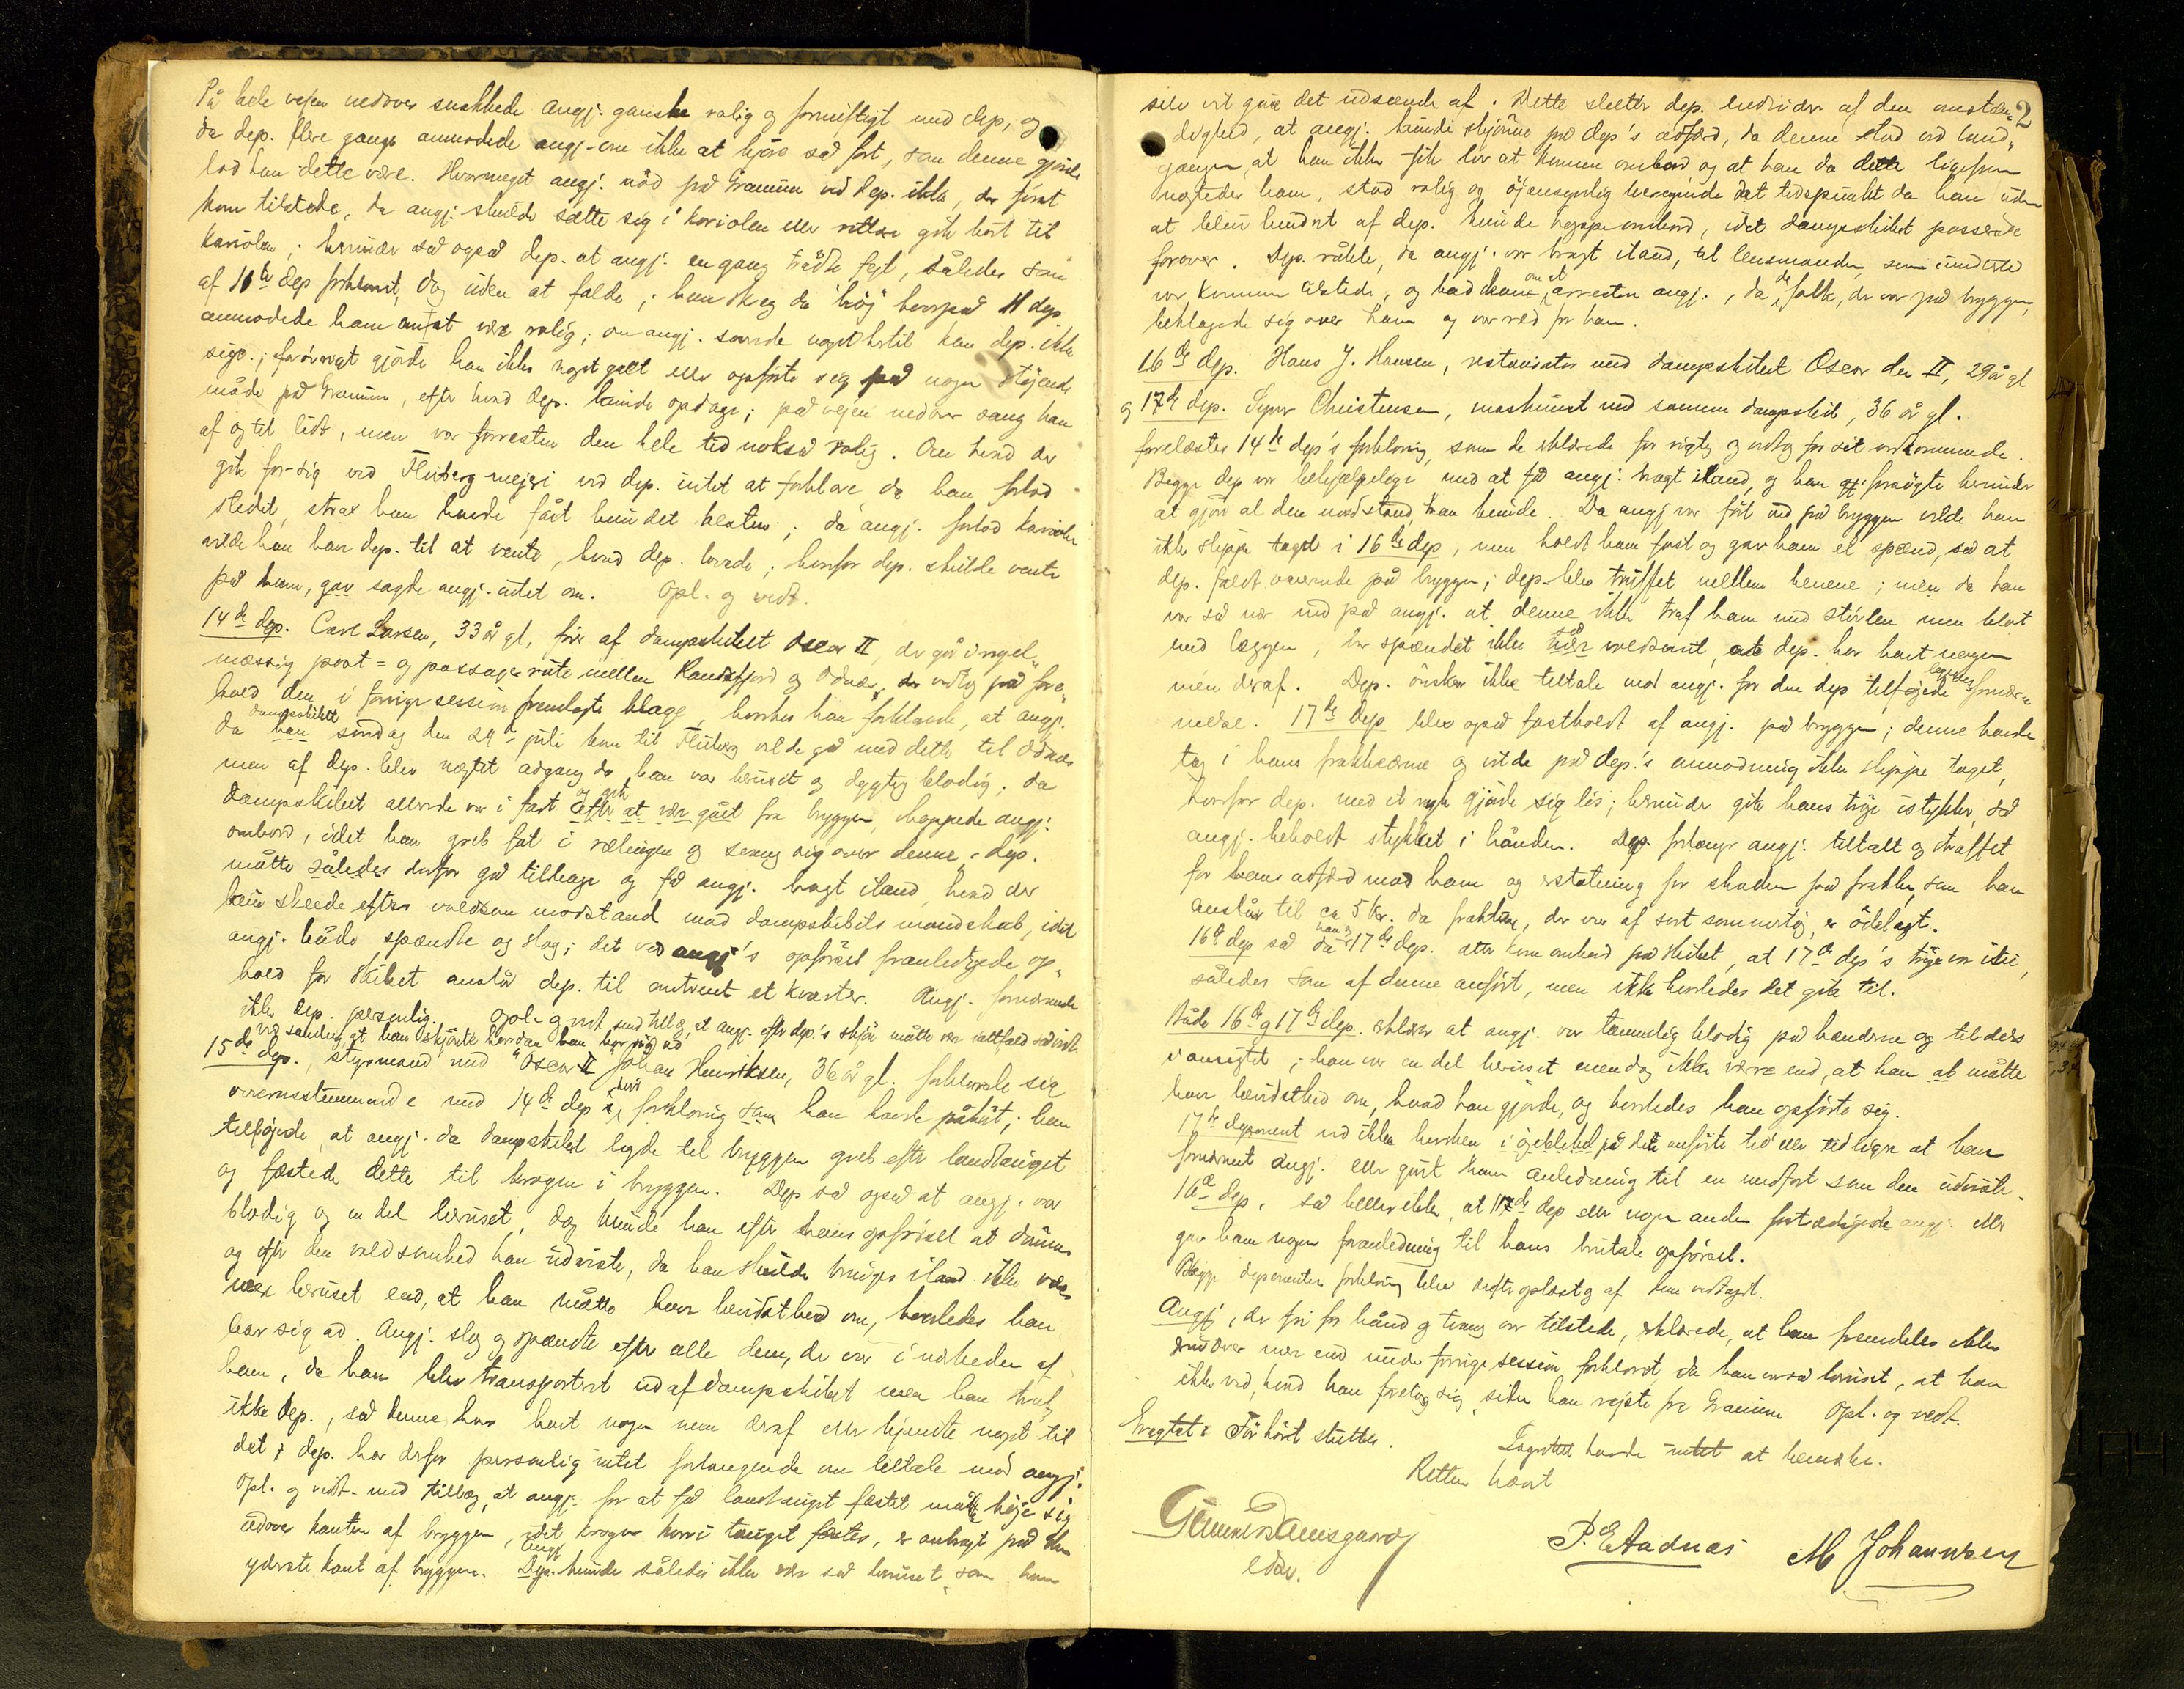 På hele vejen nedover snakkede angj. ganske rolig og fornuftigt med dep, og
da dep. flere gange anmodede angj. om ikke at kjøre så fort, som denne gjorde
lod han dette være. Hvormeget angj. nød på Granum ved dep. ikke, der først
kom tilstede, da angj. skulde sætte sig i kariolen eller rettere gik bort til
kariolen; herunder så også dep. at angj. en gang trådte fejl, således som
af 11te dep forklaret, dog uden at falde; han skreg da "høj" hvorpå 11 dep
anmodede ham om at være rolig; om angj. svarede noget hertil kan dep. ikke
sige.; forøvrigt gjorde han ikke noget galt eller opførte sig på nogen støjende
måde på Granum, efter hvad dep. kunde opdage; på vejen nedover sang han
af og til lidt, men var forresten den hele tid nokså rolig. Om hvad der
gik for sig ved Fluberg mejeri ved dep. intet at forklare da han forlod
stedet, strax han havde fået bundet hesten; da angj. forlod kariolen
vilde han have dep. til at vente, hvad dep. lovede; hvorfor dep. skulde vente
på ham, sagde angj. intet om. Opl. og vedt.
14de dep. Carl Larsen, 33 år gl, fører af dampskibet Oscar II, der går i regel-
mæssig post= og passagerrute mellem Randsfjord og Odnæs, der vedtog på fore-
hold den i forrige session fremlagte klage, hvorhos han forklarede, at angj.
da han dampskibet søndag den 29de juli kom til Fluberg vilde gå med dette til Odnæs
men af dep. blev nægtet adgang da han var beruset og dygtig blodig; da
dampskibet allerede var i fart efter at være gået og gik fra bryggen, hoppede angj.
ombord, idet han greb fat i rælingen og sving sig over denne; dep.
måtte således derfor gå tilbage og få angj. bragt iland, hvad der
kun skede efter voldsom modstand mod dampskibets mandskab, idet
angj. både spændte og slog; det ved angj's opførsel foranledigede op-
hold for skibet anslår dep. til omtrent et kvarter. Angj. fornærmede
ikke dep. personlig. Opl. og vedt. med tillæg, at angj. efter dep.'s skjøn måtte være i ethvert fald så vidt
ved samling at han skjønte hvordan han bar sig ad
15de dep., styrmand med "Oscar II" Johan Henriksen, 36 år gl. forklarede sig
overensstemmende med 14de dep's hvis forklaring som han havde påhørt; han
tilføjede, at angj. da dampskibet lagde til bryggen greb efter landtauget
og fæstede dette til krogen i bryggen. Dep så også at angj. var
blodig og en del beruset, dog kunde han efter hans opførsel at dømme
og efter den voldsomhed han udviste, da han skulde bringes iland ikke være
mere beruset end, at han måtte have bevidsthed om, hvorledes han
bar sig ad. Angj. slog og spændte efter alle dem, der var i nærheden af
ham, da han blev transporteret ud af dampskibet men han traf
ikke dep., så denne har havt nogen men deraf eller kjendte noget til
det; dep. har derfor personlig intet forlangende om tiltale mod angj.
Opl. og vedt. med tillæg, at angj. for at få landtauget fæstet måtte bøje sig
udover kanten af bryggen, idet krogen hvori tauget fæstes, er anbragt på den
yderste kant af bryggen. Dep. angj kunde således ikke være så beruset som han
2
selv vil give det udseende af. Dette slutter dep. endvidere af den omstæn-
dighed, at angj. kunde skjønne på dep's adfærd, da denne stod ved land-
gangen, at han ikke fik lov at komme ombord og at han da dette ligefrem
nægtedes ham, stod rolig og øjensynlig beregnede det tidspunkt da han uden
at blive hindret af dep. kunde hoppe ombord, idet dampskibet passerede
forover. Dep. råbte, da angj. var bragt iland, til lensmanden, som imidlertid
var kommen tilstede, og bad ham om at arrestere angj., da de folk, der var på bryggen,
beklagede sig over ham og var ræd for ham.
16de dep. Hans J. Hansen, restauratør med dampskibet Oscar den II, 29 år gl
og 17de dep. Syver Christensen, maskinist med samme dampskib, 36 år gl.
forelæstes 14de dep's forklaring, som de erklærede for rigtig og vedtog for sit vedkommende.
Begge dep var behjælpelige med at få angj. bragt iland, og han forsøgte herunder
at gjøre al den modstand, han kunde. Da angj var ført ud på bryggen vilde han
ikke slippe taget i 16de dep, men holdt ham fast og gav ham et spænd, så at
dep. faldt overende på bryggen; dep. blev truffet mellem benene; men da han
var så nær ind på angj. at denne ikke traf ham med støvlen men blot
med læggen, var spændet ikke så voldsomt, at dep. har havt nogen
men deraf. Dep. ønsker ikke tiltale mod angj. for den dep tilføjede legems fornær-
melse. 17de dep blev også fastholdt af angj. på bryggen; denne havde
tag i hans frakkeærme og vilde på dep.'s anmodning ikke slippe taget,
hvorfor dep. med et ryk gjorde sig løs; herunder gik hans trøje istykker, så
angj. beholdt stykket i hånden. Dep. forlanger angj. tiltalt og straffet
for hans adfærd mod ham og erstatning for skaden på frakken, som han
anslår til ca 5 kr. da frakken, der var af sort sommertøj, er ødelagt.
16de dep så da han og 17de dep. atter kom ombord på skibet, at 17de dep's trøje var itu,
således som af denne anført, men ikke hvorledes det gik til.
Både 16de og 17de dep. erklærer at angj. var temmelig blodig på hænderne og tildels
i ansigtet; han var en del beruset men dog ikke værre end, at han måtte
have bevidsthed om, hvad han gjorde, og hvorledes han opførte sig.
17de deponent ved ikke hverken i øjeblikket på det anførte tid eller tidligere at have
fornærmet angj. eller givet ham anledning til en medfart som den udviste.
16de dep. så heller ikke, at 17de dep eller nogen anden fortørnede angj. eller
gav ham nogen foranledning til hans brutale opførsel.
Begge deponenters forklaring blev dem oplæst og af dem vedtaget.
Angj., der fri for bånd og tvang var tilstede, erklærede, at han fremdeles ikke
mindes mer end under forrige session forklaret, da han var så beruset, at han
ikke ved, hvad han foretog sig, siden han rejste fra Granum Opl. og vedt.
Eragtet: Forhøret sluttes.
Lagretten havde intet at bemærke.
Retten hævet
Gunnerius Amsgaard
edsv.
P. E. Aadnæs M Johannesen